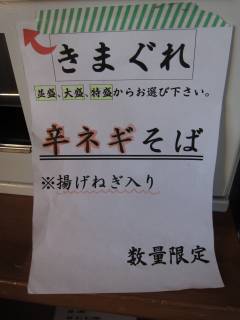 きまぐれ
並盛、大盛、特盛からお選び下さい。
辛ネギそば
※揚げねぎ入り
数量限定